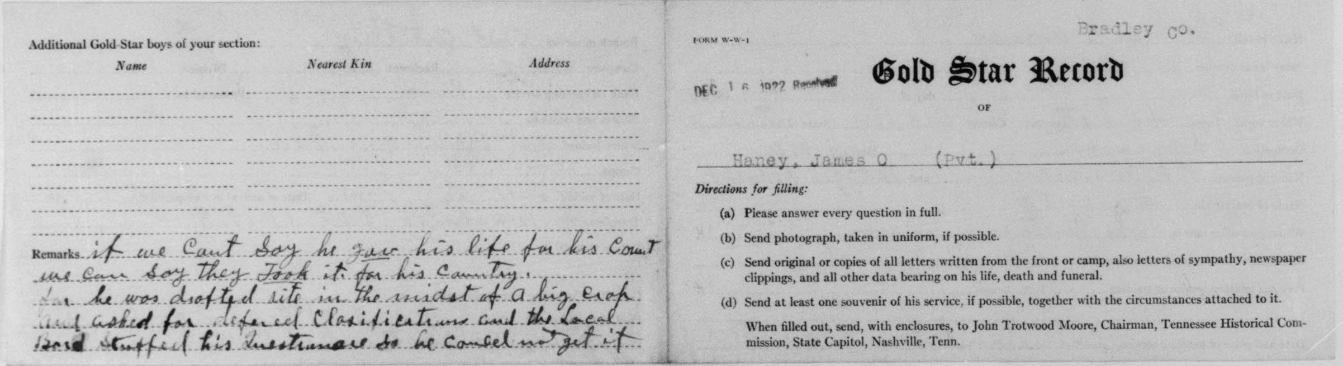 Additional Gold-Star boys of your section:
Name Nearest Kin Address
Remarks if we Cant Say he gav his life for his Count
we can Say they Took it for his Country.
for he was drafted rite in the midst of a big crop
and asked for defered Clasifications and the Local
Bord Stuffed his Questionare so he coueel not get it
Bradley Co.
FORM W-W-1
DEC 16 1922 Received
Gold Star Record
OF
Haney, James O (Pvt.)
Directions for filling:
(a) Please answer every question in full.
(b) Send photograph, taken in uniform, if possible.
(c) Send original or copies of all letters written from the front or camp, also letters of sympathy, newspaper
clippings, and all other data bearing on his life, death and funeral.
(d) Send at least one souvenir of his service, if possible, together with the circumstances attached to it.
When filled out, send, with enclosures, to John Trotwood Moore, Chairman, Tennessee Historical Com-
mission, State Capitol, Nashville, Tenn.